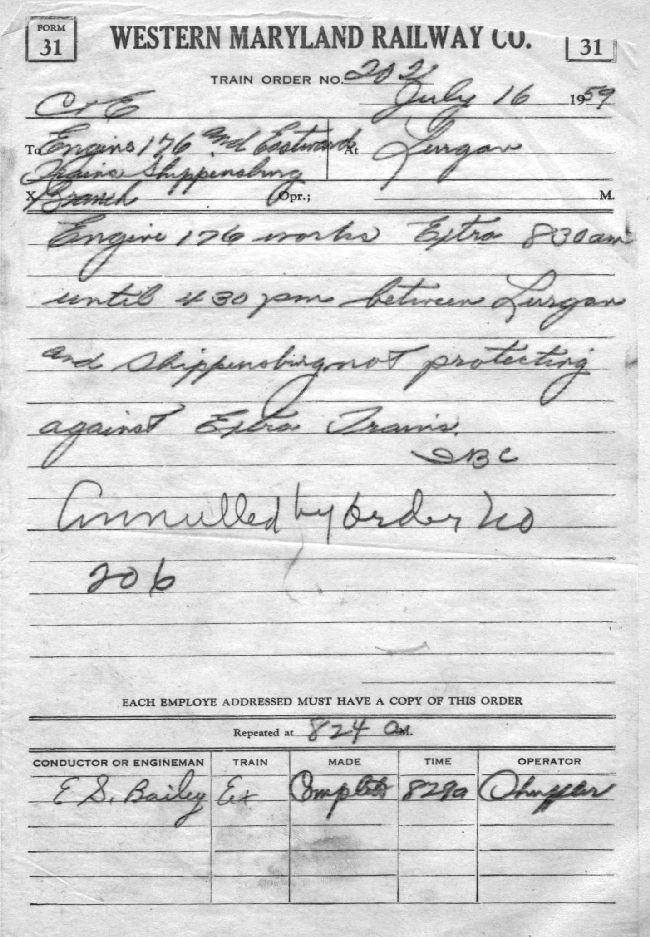 FORM
31
WESTERN MARYLAND RAILWAY CO.
31
TRAIN ORDER NO.
July 16 1959
C+E
To Engine 176 and Eastward At Lurgan
Trains Shippensburg
X Branch Opr.; M.
Engine 176 works Extra 830 am
until 430 pm between Lurgan
and Shippensburg not protecting
against Extra Trains.
Annulled by order No
206
EACH EMPLOYE ADDRESSED MUST HAVE A COPY OF THIS ORDER
Repeated at 824 a M.
CONDUCTOR OR ENGINEMAN TRAIN MADE TIME OPERATOR
E S. Bailey Ex Complete 829a